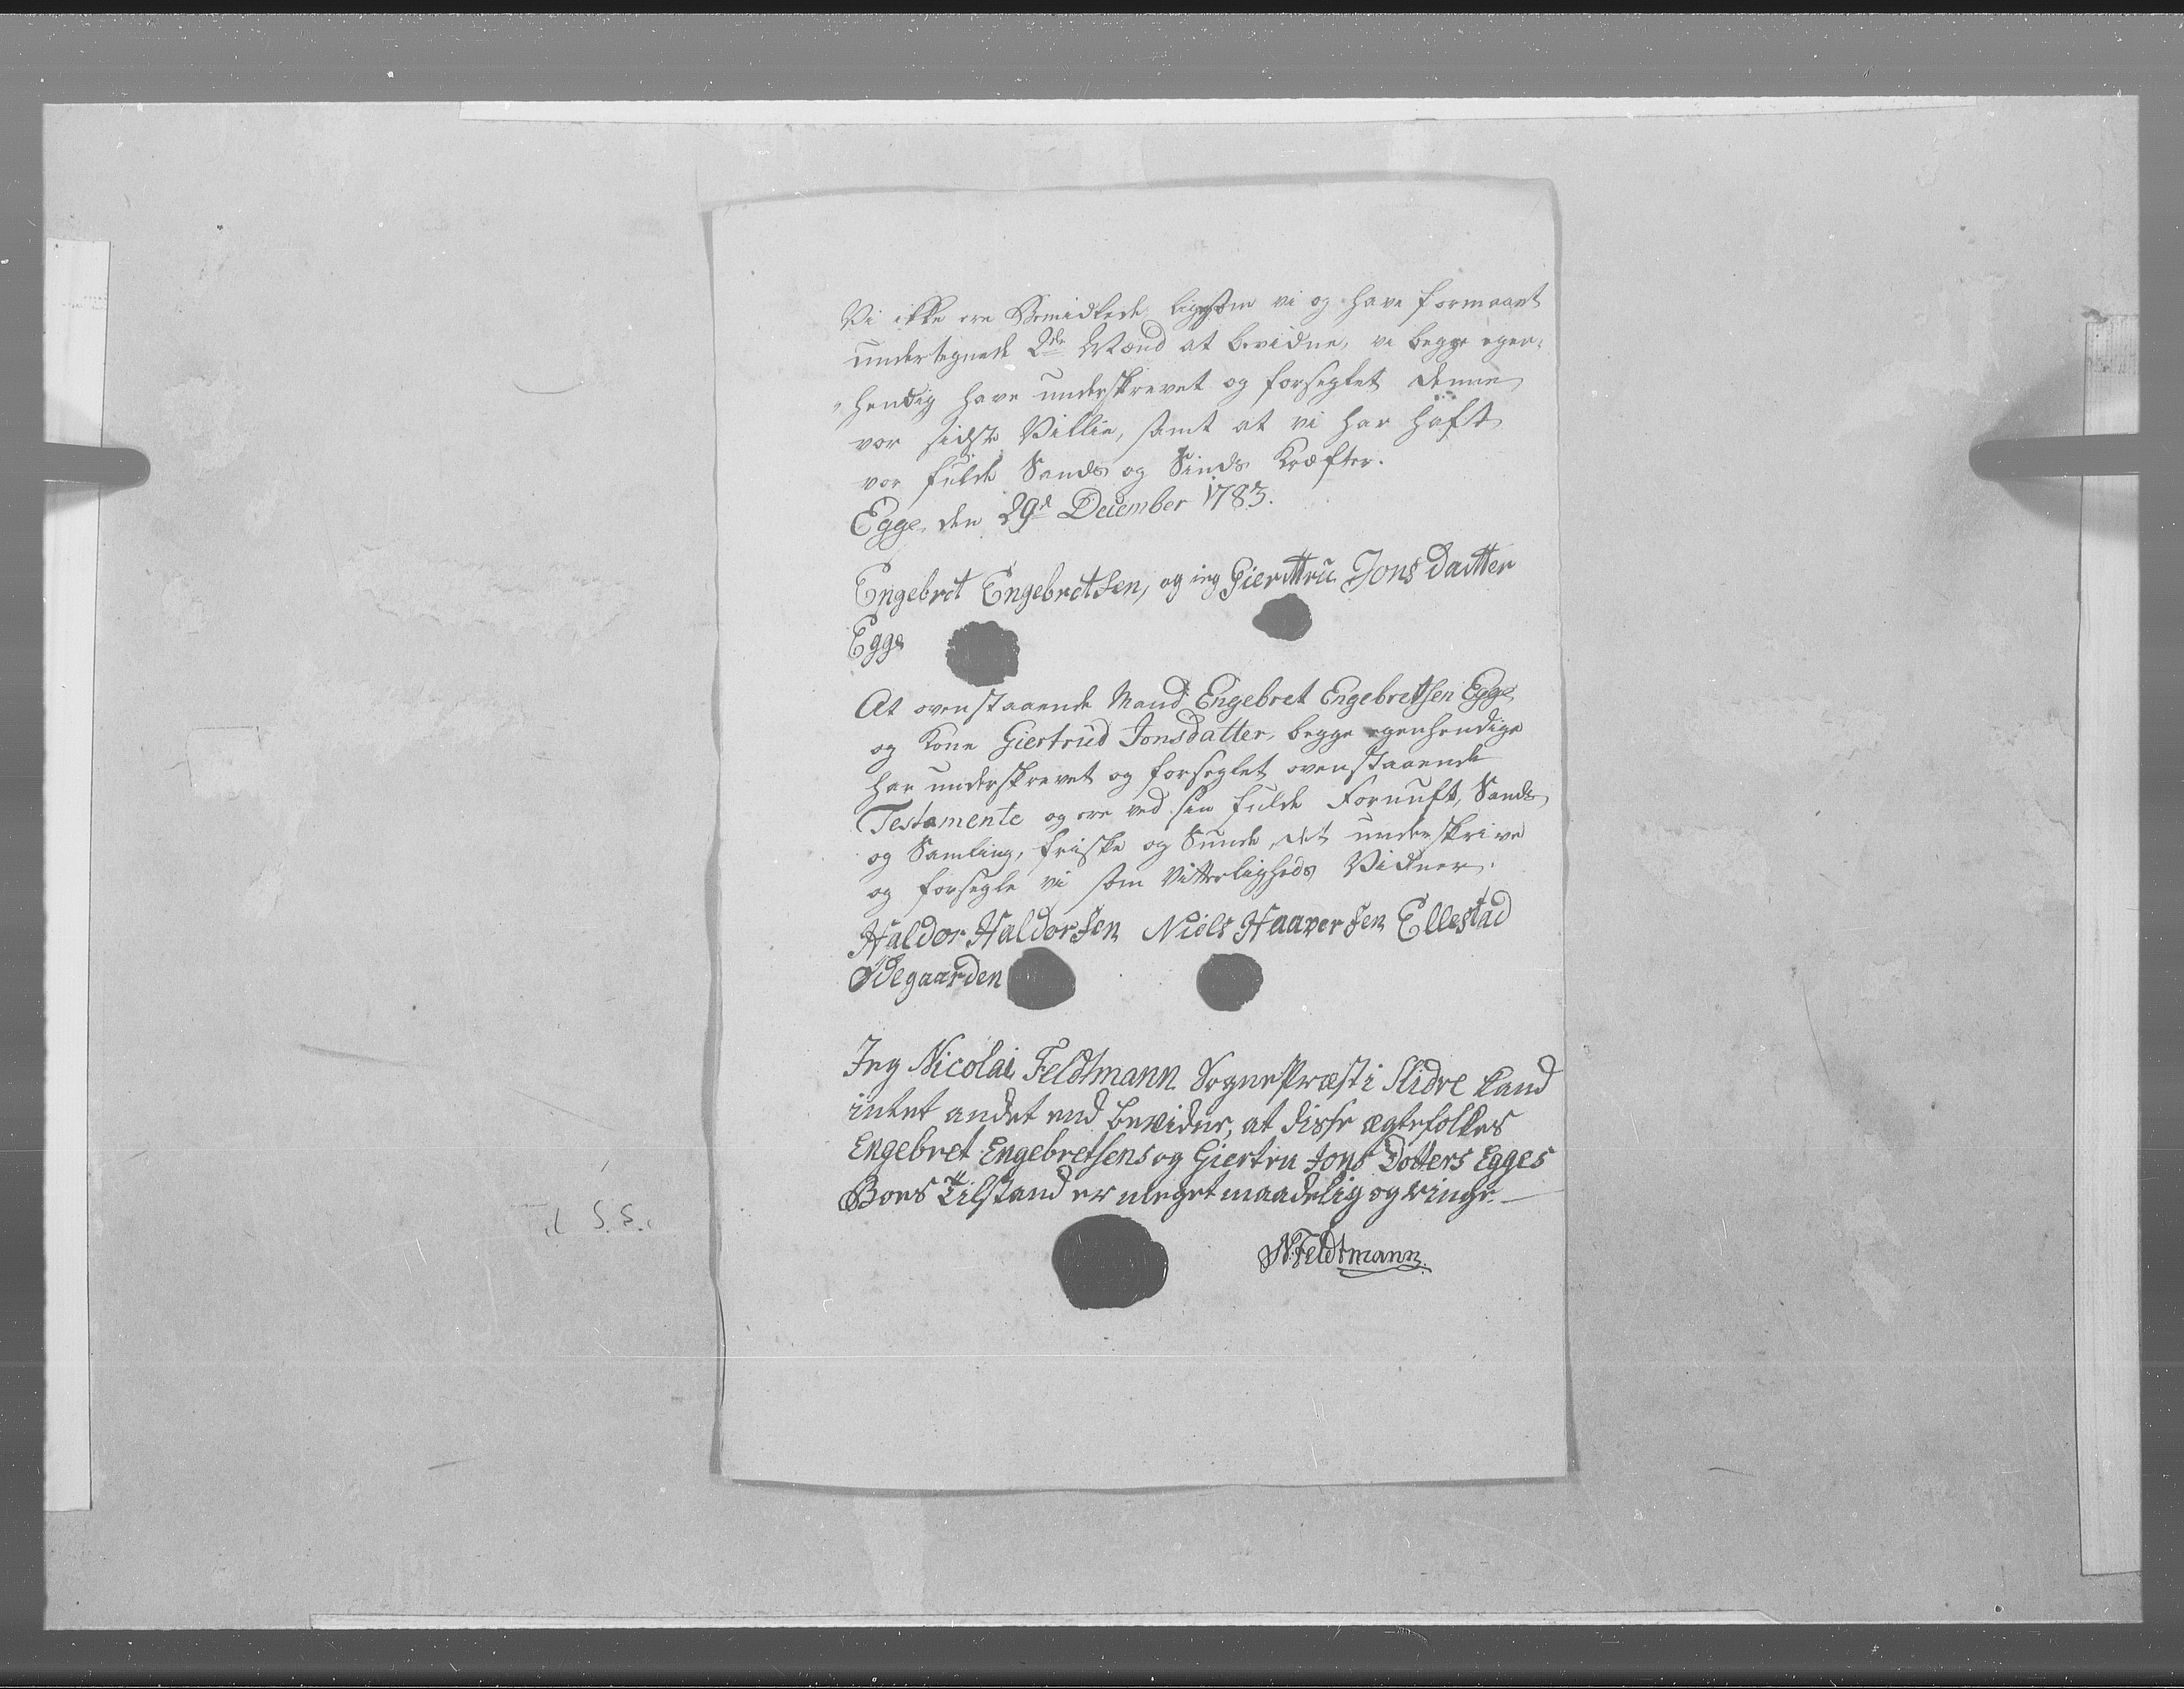 Vi ikke ere Bemidlede, ligesom vi og have formaaet
undertegnede 2de Mænd at bevidne, vi begge egen-
hendig have underskrevet og forseglet denne
vor sidste Villie, samt at vi har haft
vor fulde Sands og Sinds Kræfter.
Egge den 29de December 1783.
Engebret Engebretsen, og ieg Gierttru Jons datter
Egge
At ovenstaaende Mand Engebret Engebretsen Egge
og Kone Giertrud Jonsdatter, begge egenhendige
har underskrevet og forseglet ovenstaaende
Testamente og ere ved sin fulde Fornuft, Sands
og Samling, friske og Sunde, det underskrive
og forsegle vi som Vitterligheds Vidner.
Haldor Haldorsen Niels Haaversen Ellestad
Ødegaarden
Jeg Nicolai Feldtmann Sognepræst i Slidre kand
intet andet end bevidne, at disse ægtefolkes
Engebret Engebretsens og Giertru Jons Dotters Egges
Boes Tilstand er meget maadelig og ringe.
N. Feldtmann.